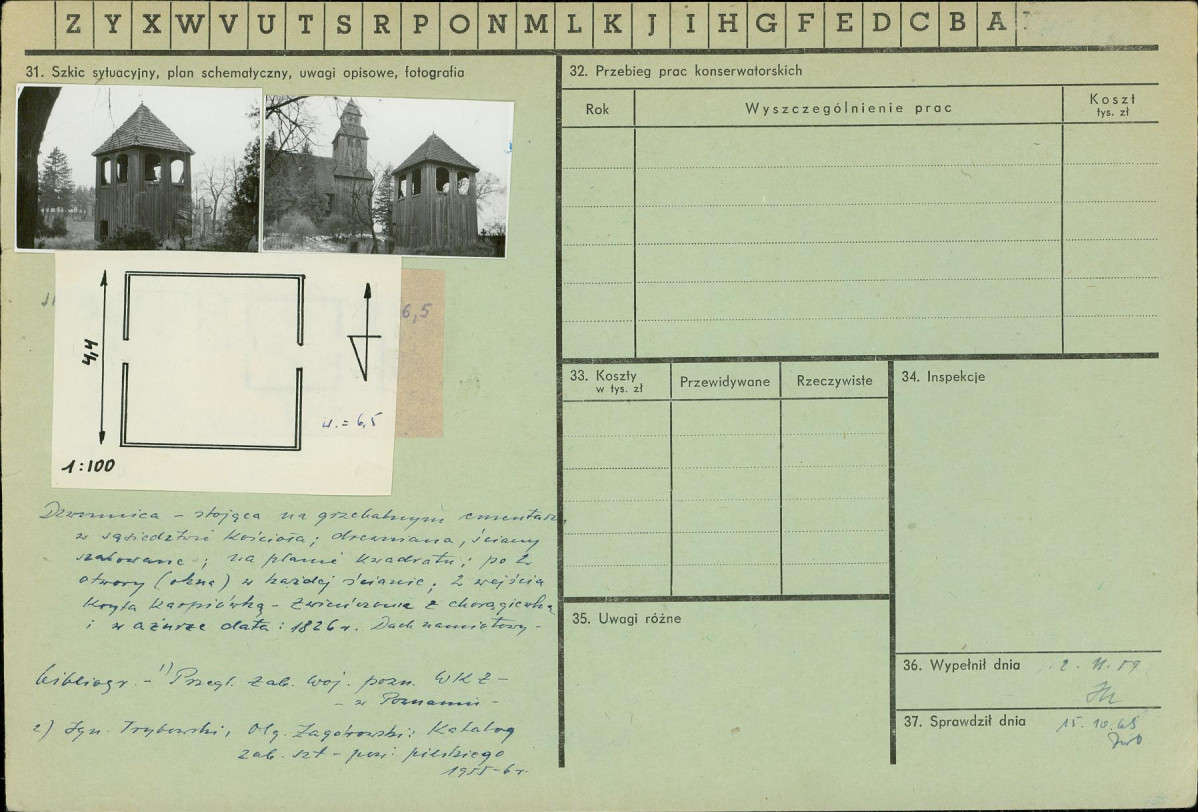 Z Y X W V U T S R P O N M L K J I H G F E D C B A
31. Szkic sytuacyjny, plan schematyczny, uwagi opisowe, fotografia
4,4
1:100
w. = 6,5
6,5
Dzwonnica – stojąca na grzebalnym cmentarzu
w sąsiedztwie kościoła; drewniana, ściany
szalowane –; na planie kwadratu; po 2
otwory (okna) w każdej ścianie; 2 wejścia
Kryta karpiówką – zwieńczona z chorągiewką
i w ażurze data: 1826 r. Dach namiotowy –
bibliogr. – 1) Przegl. zab. woj. pozn. WKZ –
– w Poznaniu –
2) Ign. Trybowski, Olg. Zagórowski: Katalog
zab. szt – pow. pilskiego
1955–6 r.
32. Przebieg prac konserwatorskich
Rok
Wyszczególnienie prac
Koszt
tys. zł
33. Koszty
w tys. zł
Przewidywane
Rzeczywiste
34. Inspekcje
35. Uwagi różne
36. Wypełnił dnia 2. 11. 59
37. Sprawdził dnia 15. 10. 65